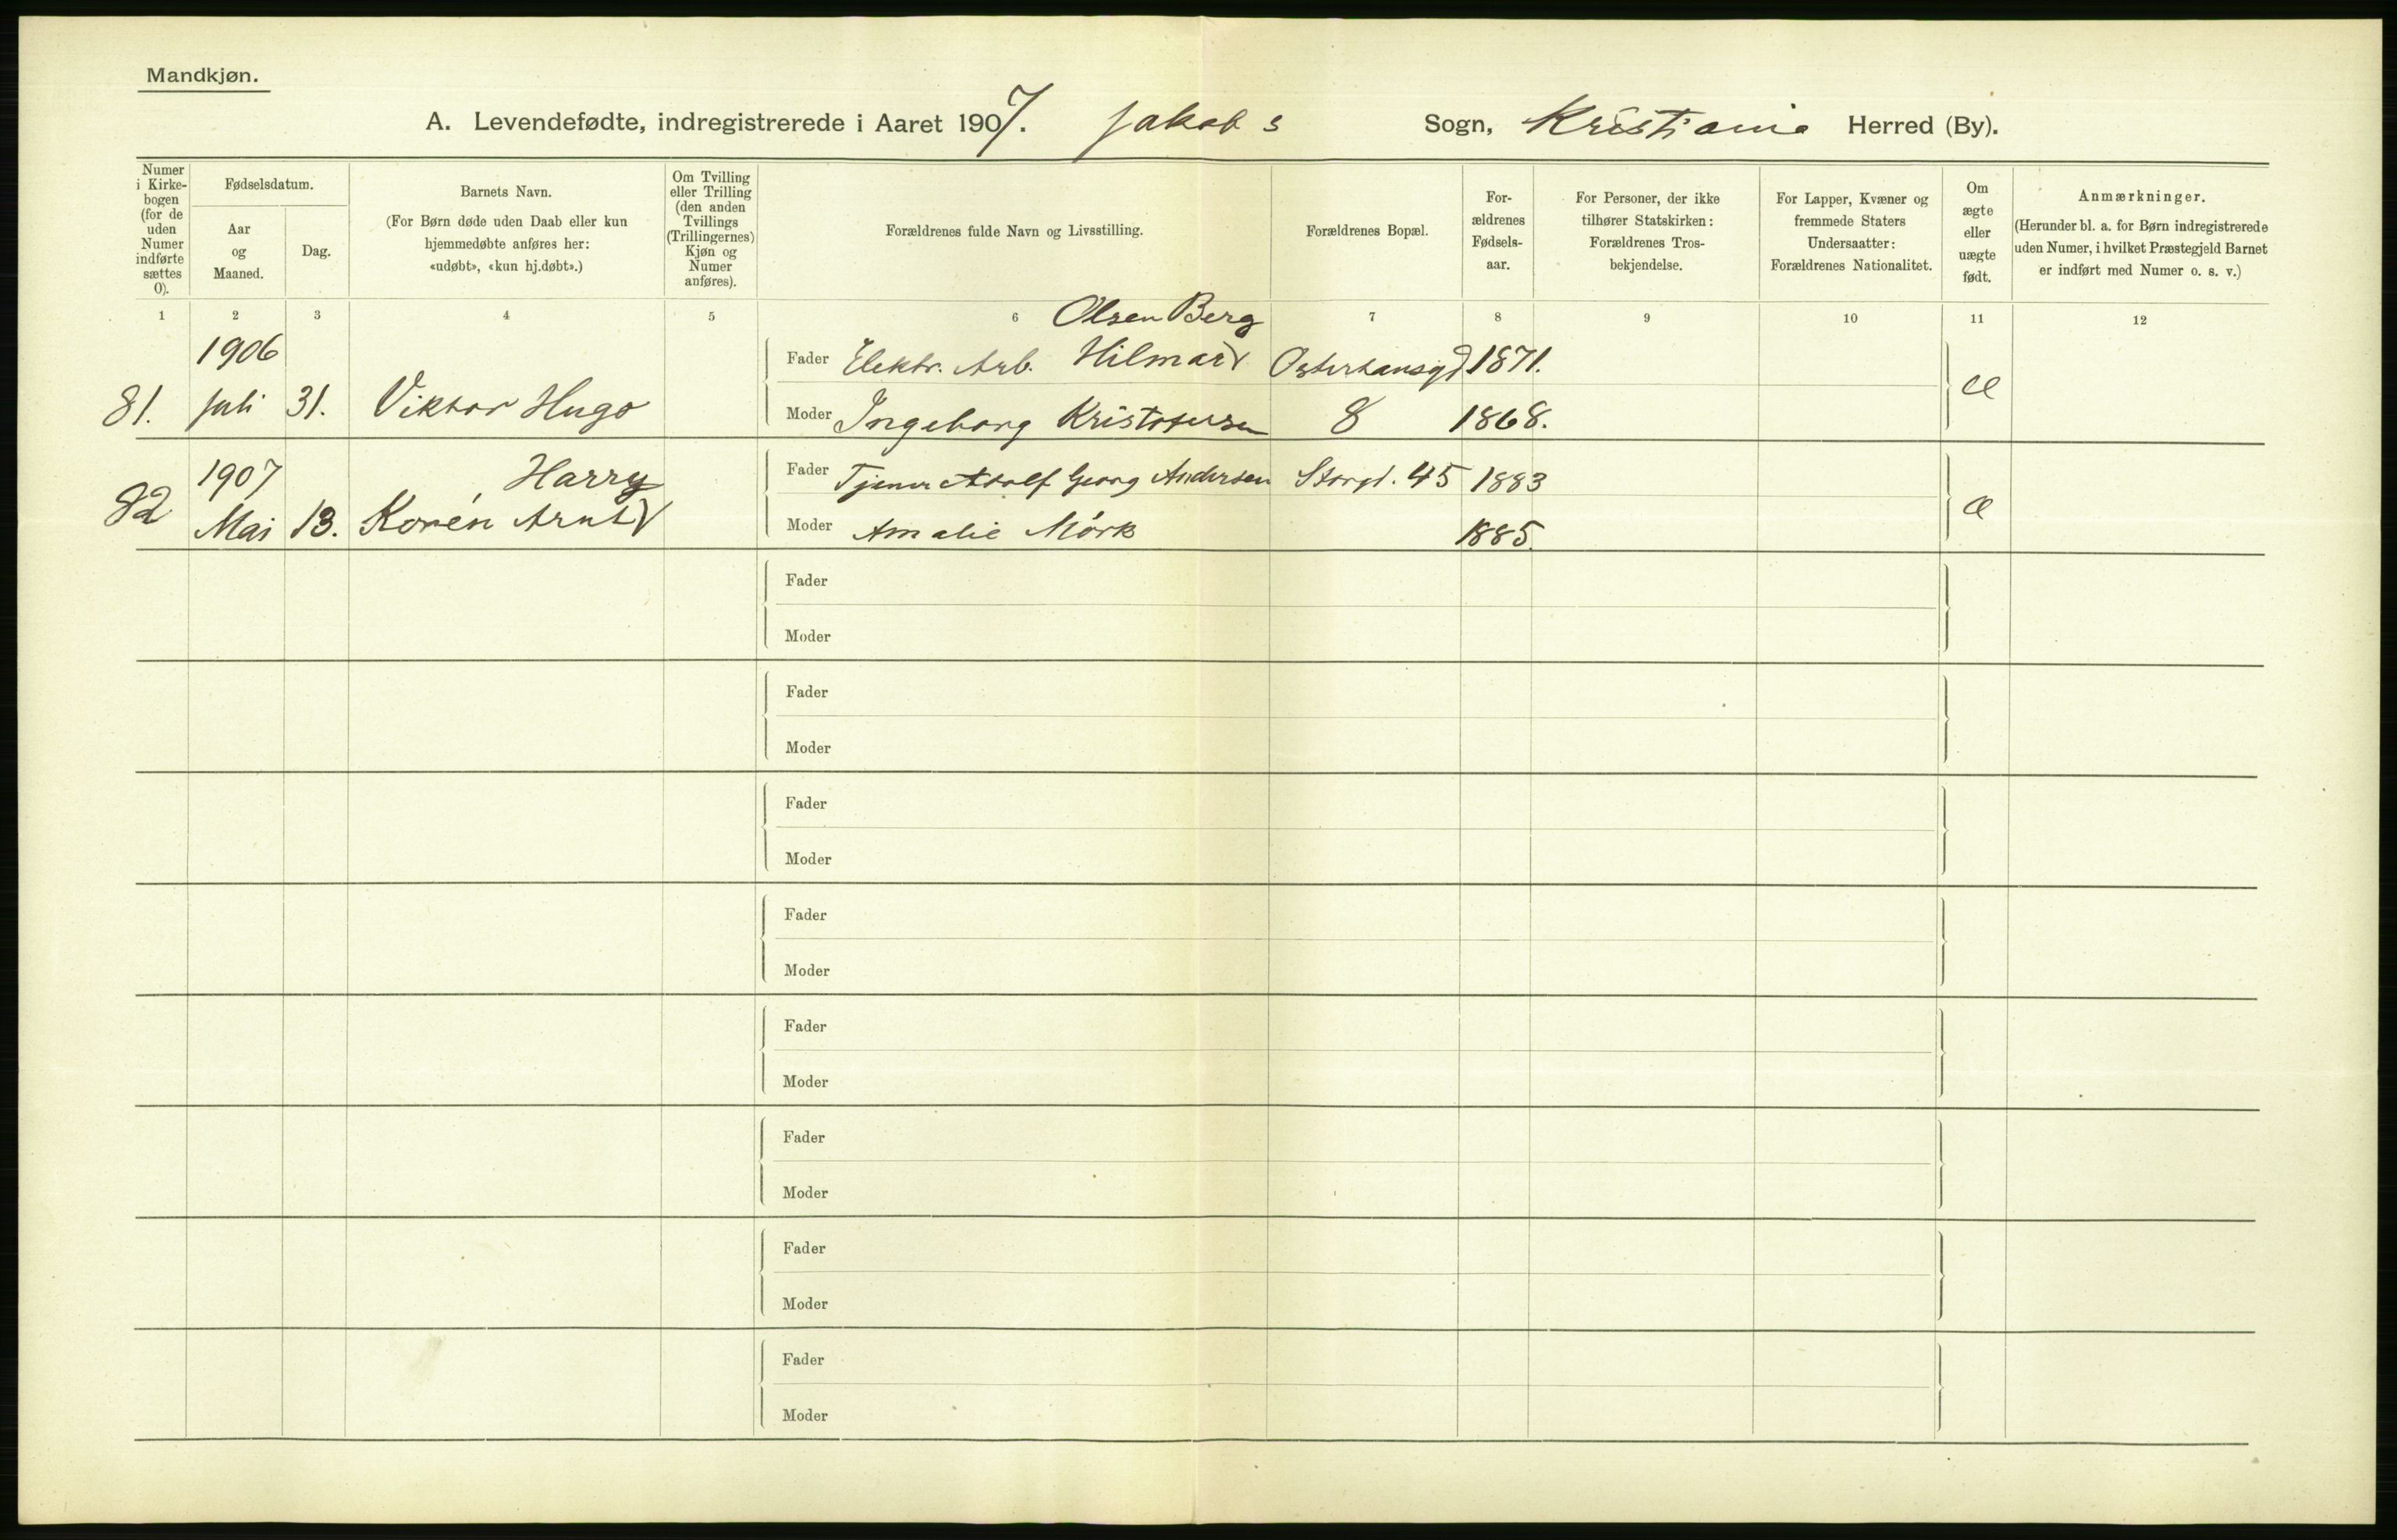 Mandkjøn.
A. Levendefødte, indregistrerede i Aaret 1907. Jakobs Sogn, Kristiania Herred (By).
Numer i Kirkebogen (for de uden Numer indførte sættes 0).
Fødselsdatum.
Aar og Maaned.
Dag.
Barnets Navn.
(For Børn døde uden Daab eller kun
hjemmedøbte anføres her:
«udøbt», «kun hj.døbt».)
Om Tvilling
eller Trilling
(den anden
Tvillings
(Trillingernes)
Kjøn og
Numer
anføres).
Forældrenes fulde Navn og Livsstilling.
Forældrenes Bopæl.
For-
ældrenes
Fødsels-
aar.
For Personer, der ikke
tilhører Statskirken:
Forældrenes Tros-
bekjendelse.
For Lapper, Kvæner og
fremmede Staters
Undersaatter:
Forældrenes Nationalitet.
Om
ægte
eller
uægte
født.
Anmærkninger.
(Herunder bl. a. for Børn indregistrerede
uden Numer, i hvilket Præstegjeld Barnet
er indført med Numer o. s. v.)
1 2 3 4 5 6 7 8 9 10 11 12
Olsen Berg
1906 Fader Elektr. Arb. Hilmar √ Osterhausgd 1871.
81. Juli 31. Viktor Hugo Moder Ingeborg Kristofersen 8 1868. æ
1907 Harry Fader Tjener Adolf Georg Andersen Storgd. 45 1883
82 Mai 13. Korén Arnt √ Moder Amalie Mörk 1885. æ
Fader
Moder
Fader
Moder
Fader
Moder
Fader
Moder
Fader
Moder
Fader
Moder
Fader
Moder
Fader
Moder